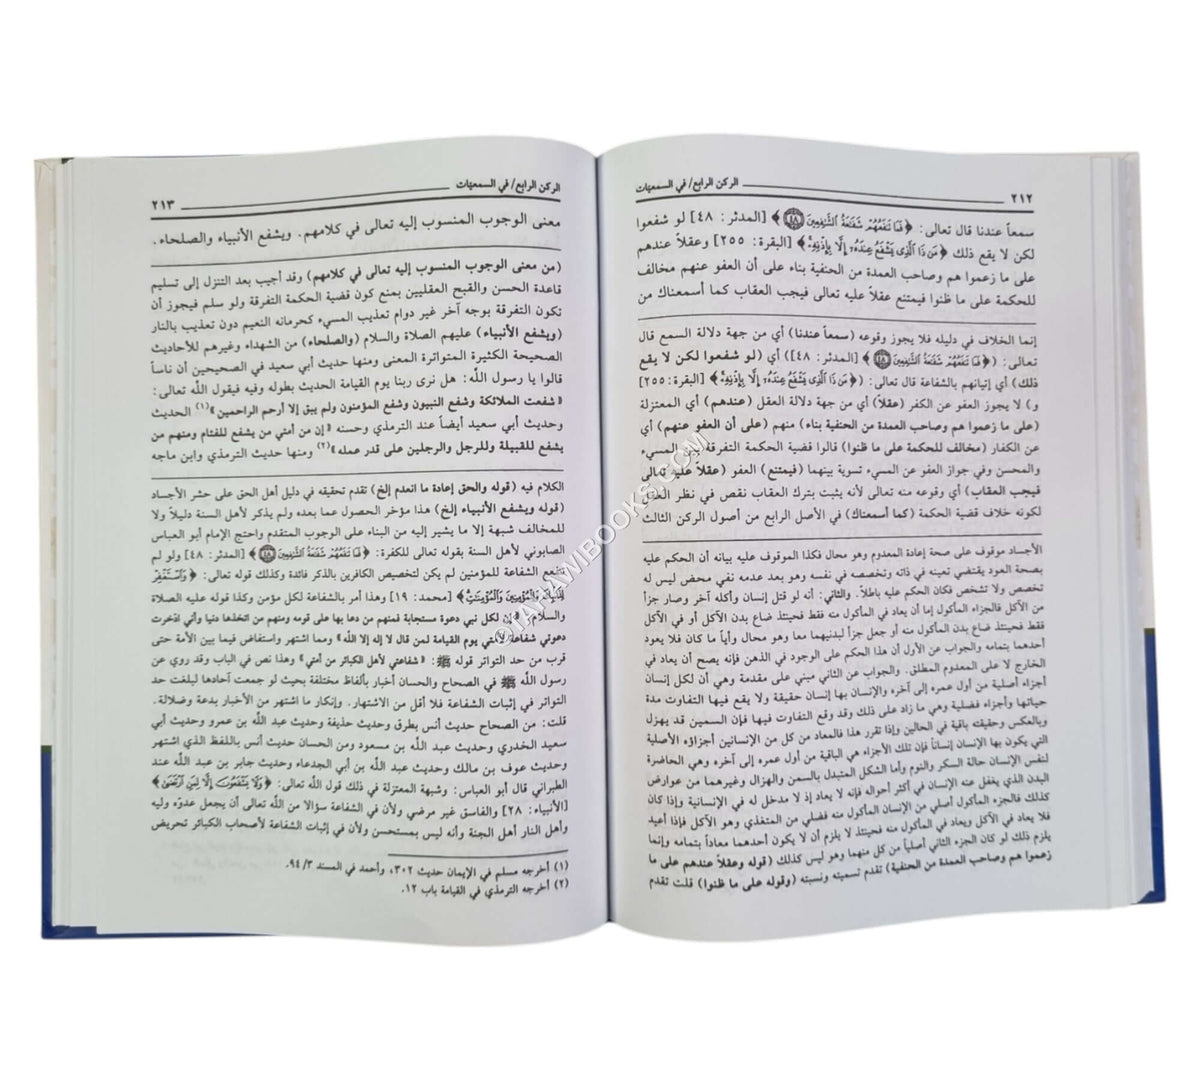 ٢١٢ الركن الرابع/ في السمعيّات
سمعاً عندنا قال تعالى: ﴿فَمَا نَنفَعُهُمْ شَفَعَةُ ٱلشَّٰفِعِينَ ٤٨﴾ [المدثر: ٤٨] لو شفعوا
لكن لا يقع ذلك ﴿مَن ذَا ٱلَّذِى يَشْفَعُ عِندَهُۥٓ إِلَّا بِإِذْنِهِۦ﴾ [البقرة: ٢٥٥] وعقلاً عندهم
على ما زعموا هم وصاحب العمدة من الحنفية بناء على أن العفو عنهم مخالف
للحكمة على ما ظنوا فيمتنع عقلاً عليه تعالى فيجب العقاب كما أسمعناك من
إنما الخلاف في دليله فلا يجوز وقوعه (سمعاً عندنا) أي من جهة دلالة السمع قال
تعالى: (﴿فَمَا نَنفَعُهُمْ شَفَعَةُ ٱلشَّٰفِعِينَ ٤٨﴾ [المدثر: ٤٨]) أي (لو شفعوا لكن لا يقع
ذلك) أي إتيانهم بالشفاعة قال تعالى: (﴿مَن ذَا ٱلَّذِى يَشْفَعُ عِندَهُۥٓ إِلَّا بِإِذْنِهِۦ﴾ [البقرة: ٢٥٥]
و) لا يجوز العفو عن الكفر (عقلاً) أي من جهة دلالة العقل (عندهم) أي المعتزلة
(على ما زعموا هم وصاحب العمدة من الحنفية بناء) منهم (على أن العفو عنهم) أي
عن الكفار (مخالف للحكمة على ما ظنوا) قالوا قضية الحكمة التفرقة بين المسيء
والمحسن وفي جواز العفو عن المسيء تسوية بينهما (فيمتنع) العفو (عقلاً عليه تعالى
فيجب العقاب) أي وقوعه منه تعالى لأنه يثبت بترك العقاب نقص في نظر العقل
لكونه خلاف قضية الحكمة (كما أسمعناك) في الأصل الرابع من أصول الركن الثالث
الأجساد موقوف على صحة إعادة المعدوم وهو محال فكذا الموقوف عليه بيانه أن الحكم عليه
بصحة العود يقتضي تعينه في ذاته وتخصصه في نفسه وهو بعد عدمه نفي محض ليس له
تخصص ولا تشخص فكان الحكم عليه باطلاً. والثاني: أنه لو قتل إنسان وأكله آخر وصار جزأ
من الآكل فالجزاء المأكول إما أن يعاد في المأكول منه فقط فحينئذ ضاع بدن الآكل أو في الآكل
فقط فحينئذ ضاع بدن المأكول منه أو جعل جزأ لبدنيهما معا وهو محال وأياً ما كان فلا يعود
أحدهما بتمامه والجواب عن الأول أن هذا الحكم على الوجود في الذهن فإنه يصح أن يعاد في
الخارج لا على المعدوم المطلق. والجواب عن الثاني مبني على مقدمة وهي أن لكل إنسان
أجزاء أصلية من أول عمره إلى آخره والإنسان بها إنسان حقيقة ولا يقع فيها التفاوت مدة
حياتها وأجزاء فضلية وهي ما زاد على ذلك وقد وقع التفاوت فيها فإن السمين قد يهزل
وبالعكس وحقيقته باقية في الحالين وإذا تقرر هذا فالمعاد من كل من الإنسانين أجزاؤه الأصلية
التي يكون بها الإنسان إنساناً فإن تلك الأجزاء هي الباقية من أول عمره إلى آخره وهي الحاضرة
لنفس الإنسان حالة السكر والنوم وأما الشكل المتبدل بالسمن والهزال وغيرهما من عوارض
البدن الذي يغفل عنه الإنسان في أكثر أحواله فإنه لا يعاد إذ لا مدخل له في الإنسانية وإذا كان
كذلك فالجزء المأكول أصلي من الإنسان المأكول منه فضلي من المتغذي وهو الآكل فإذا أعيد
فلا يعاد في الآكل ويعاد في المأكول منه فحينئذ لا يلزم أن لا يكون أحدهما معاداً بتمامه وإنما
يلزم ذلك لو كان الجزء الثاني أصلياً من كل منهما وهو ليس كذلك (قوله وعقلاً عندهم على ما
زعموا هم وصاحب العمدة من الحنفية) تقدم تسميته ونسبته (وقوله على ما ظنوا) قلت تقدم
الركن الرابع/ في السمعيّات ٢١٣
معنى الوجوب المنسوب إليه تعالى في كلامهم. ويشفع الأنبياء والصلحاء.
(من معنى الوجوب المنسوب إليه تعالى في كلامهم) وقد أجيب بعد التنزل إلى تسليم
قاعدة الحسن والقبح العقليين بمنع كون قضية الحكمة التفرقة ولو سلم فيجوز أن
تكون التفرقة بوجه آخر غير دوام تعذيب المسيء كحرمانه النعيم دون تعذيب بالنار
(ويشفع الأنبياء) عليهم الصلاة والسلام (والصلحاء) من الشهداء وغيرهم للأحاديث
الصحيحة الكثيرة المتواترة المعنى ومنها حديث أبي سعيد في الصحيحين أن ناساً
قالوا يا رسول اللَّه: هل نرى ربنا يوم القيامة الحديث بطوله وفيه فيقول اللَّه تعالى:
« شفعت الملائكة وشفع النبيون وشفع المؤمنون ولم يبق إلا أرحم الراحمين »(١) الحديث
وحديث أبي سعيد أيضاً عند الترمذي وحسنه « إن من أمتي من يشفع للفئام ومنهم من
يشفع للقبيلة وللرجل والرجلين على قدر عمله »(٢) ومنها حديث الترمذي وابن ماجه
الكلام فيه (قوله والحق إعادة ما انعدم إلخ) تقدم تحقيقه في دليل أهل الحق على حشر الأجساد
(قوله ويشفع الأنبياء إلخ) هذا مؤخر الحصول عما بعده ولم يذكر لأهل السنة دليلاً ولا
للمخالف شبهة إلا ما يشير إليه من البناء على الوجوب المتقدم واحتج الإمام أبو العباس
الصابوني لأهل السنة بقوله تعالى للكفرة: ﴿فَمَا نَنفَعُهُمْ شَفَعَةُ ٱلشَّٰفِعِينَ ٤٨﴾ [المدثر: ٤٨] ولو لم
تنفع الشفاعة للمؤمنين لم يكن لتخصيص الكافرين بالذكر فائدة وكذلك قوله تعالى: ﴿وَٱسْتَغْفِرْ
لِذَنۢبِكَ وَلِلْمُؤْمِنِينَ وَٱلْمُؤْمِنَٰتِ﴾ [محمد: ١٩] وهذا أمر بالشفاعة لكل مؤمن وكذا قوله عليه الصلاة
والسلام: « إن لكل نبي دعوة مستجابة فمنهم من دعا بها على قومه ومنهم من اتخذها دنيا وأني ادّخرت
دعوتي شفاعة لأمتي يوم القيامة لمن قال لا إله إلا اللَّه » ومما اشتهر واستفاض فيما بين الأمة حتى
قرب من حد التواتر قوله ﷺ: « شفاعتي لأهل الكبائر من أمتي » وهذا نص في الباب وقد روي عن
رسول اللَّه ﷺ في الصحاح والحسان أخبار بألفاظ مختلفة بحيث لو جمعت آحادها لبلغت حد
التواتر في إثبات الشفاعة فلا أقل من الاشتهار. وإنكار ما اشتهر من الأخبار بدعة وضلالة.
قلت: من الصحاح حديث أنس بطرق وحديث حذيفة وحديث عبد اللَّه بن عمرو وحديث أبي
سعيد الخدري وحديث عبد اللَّه بن مسعود ومن الحسان حديث أنس باللفظ الذي اشتهر
وحديث عوف بن مالك وحديث عبد اللَّه بن أبي الجدعاء وحديث جابر بن عبد اللَّه عند
الطبراني قال أبو العباس: وشبهة المعتزلة في ذلك قول اللَّه تعالى: ﴿وَلَا يَشْفَعُونَ إِلَّا لِمَنِ ٱرْتَضَىٰ﴾
[الأنبياء: ٢٨] والفاسق غير مرضي ولأن في الشفاعة سؤالا من اللَّه تعالى أن يجعل عدوّه وليه
وأهل النار أهل الجنة وأنه ليس بمستحسن ولأن في إثبات الشفاعة لأصحاب الكبائر تحريض
(١) أخرجه مسلم في الإيمان حديث ٣٠٢، وأحمد في المسند ٩٤/٣.
(٢) أخرجه الترمذي في القيامة باب ١٢.
©TAHAWIBOOKS.COM